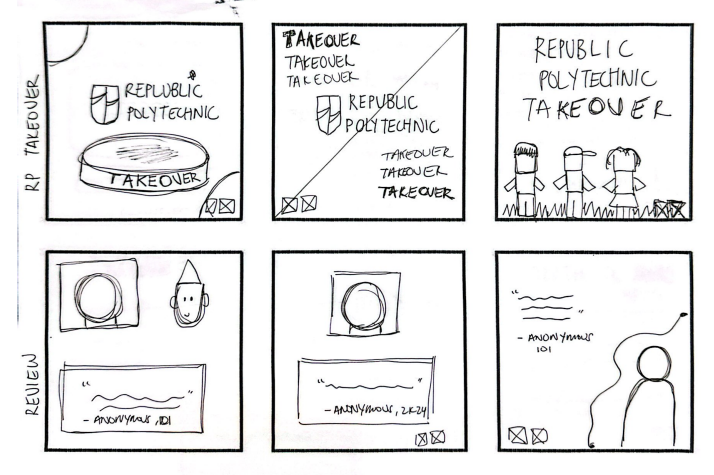 RP TAKEOVER
REPLUBLIC
POLYTECHNIC
TAKEOVER
TAKEOVER
TAKEOVER
TAKEOVER
REPUBLIC
POLYTECHNIC
TAKEOVER
TAKEOVER
TAKEOVER
REPUBLIC
POLYTECHNIC
TAKEOVER
REVIEW
"
- ANONYMOUS, 101
"
- ANONYMOUS, 2K24
"
- ANONYMOUS
101